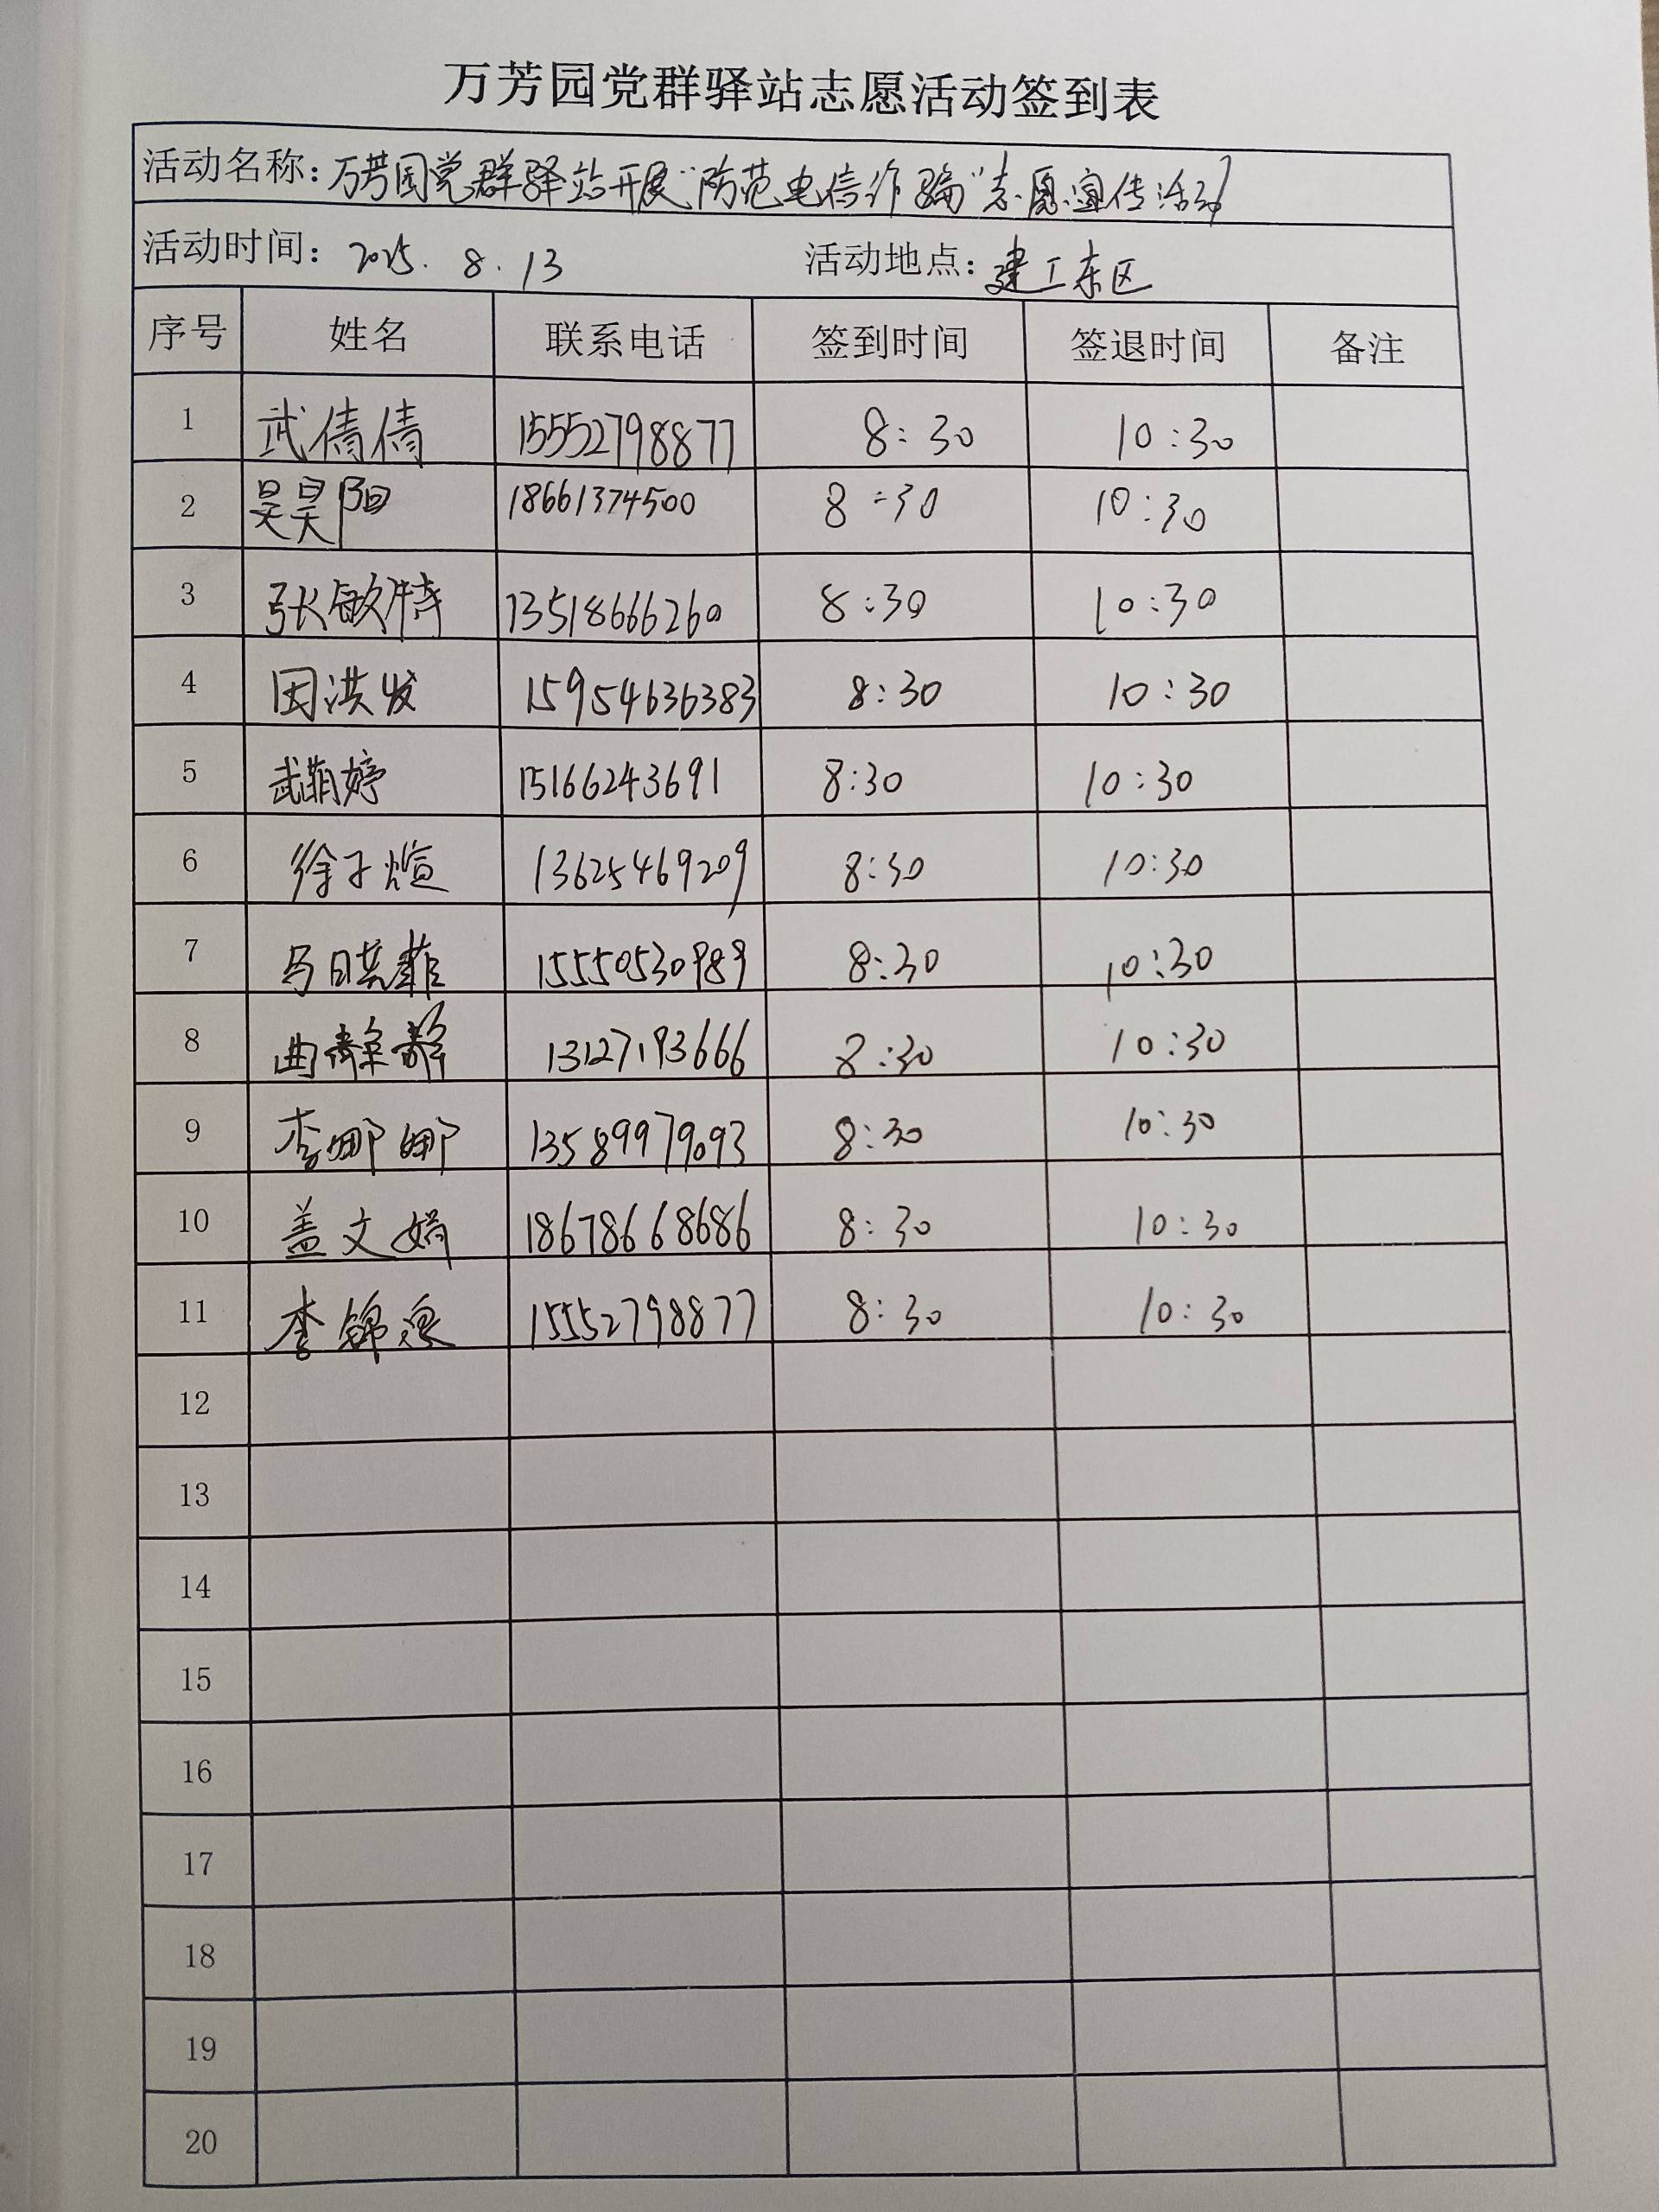 万芳园党群驿站志愿活动签到表
活动名称：万芳园党群驿站开展“防范电信诈骗”志愿宣传活动
活动时间：2025.8.13 活动地点：建工东区
序号 姓名 联系电话 签到时间 签退时间 备注
1 武倩倩 15552798877 8:30 10:30
2 昊昊阳 18661374500 8:30 10:30
3 张敏 13518666260 8:30 10:30
4 田洪发 15954636383 8:30 10:30
5 武萌婷 15166243691 8:30 10:30
6 徐子煊 13625469209 8:30 10:30
7 马晓菲 15550530989 8:30 10:30
8 曲静静 13127193666 8:30 10:30
9 李娜娜 13589979093 8:30 10:30
10 盖文娟 18678668686 8:30 10:30
11 李锦 15552798877 8:30 10:30
12
13
14
15
16
17
18
19
20